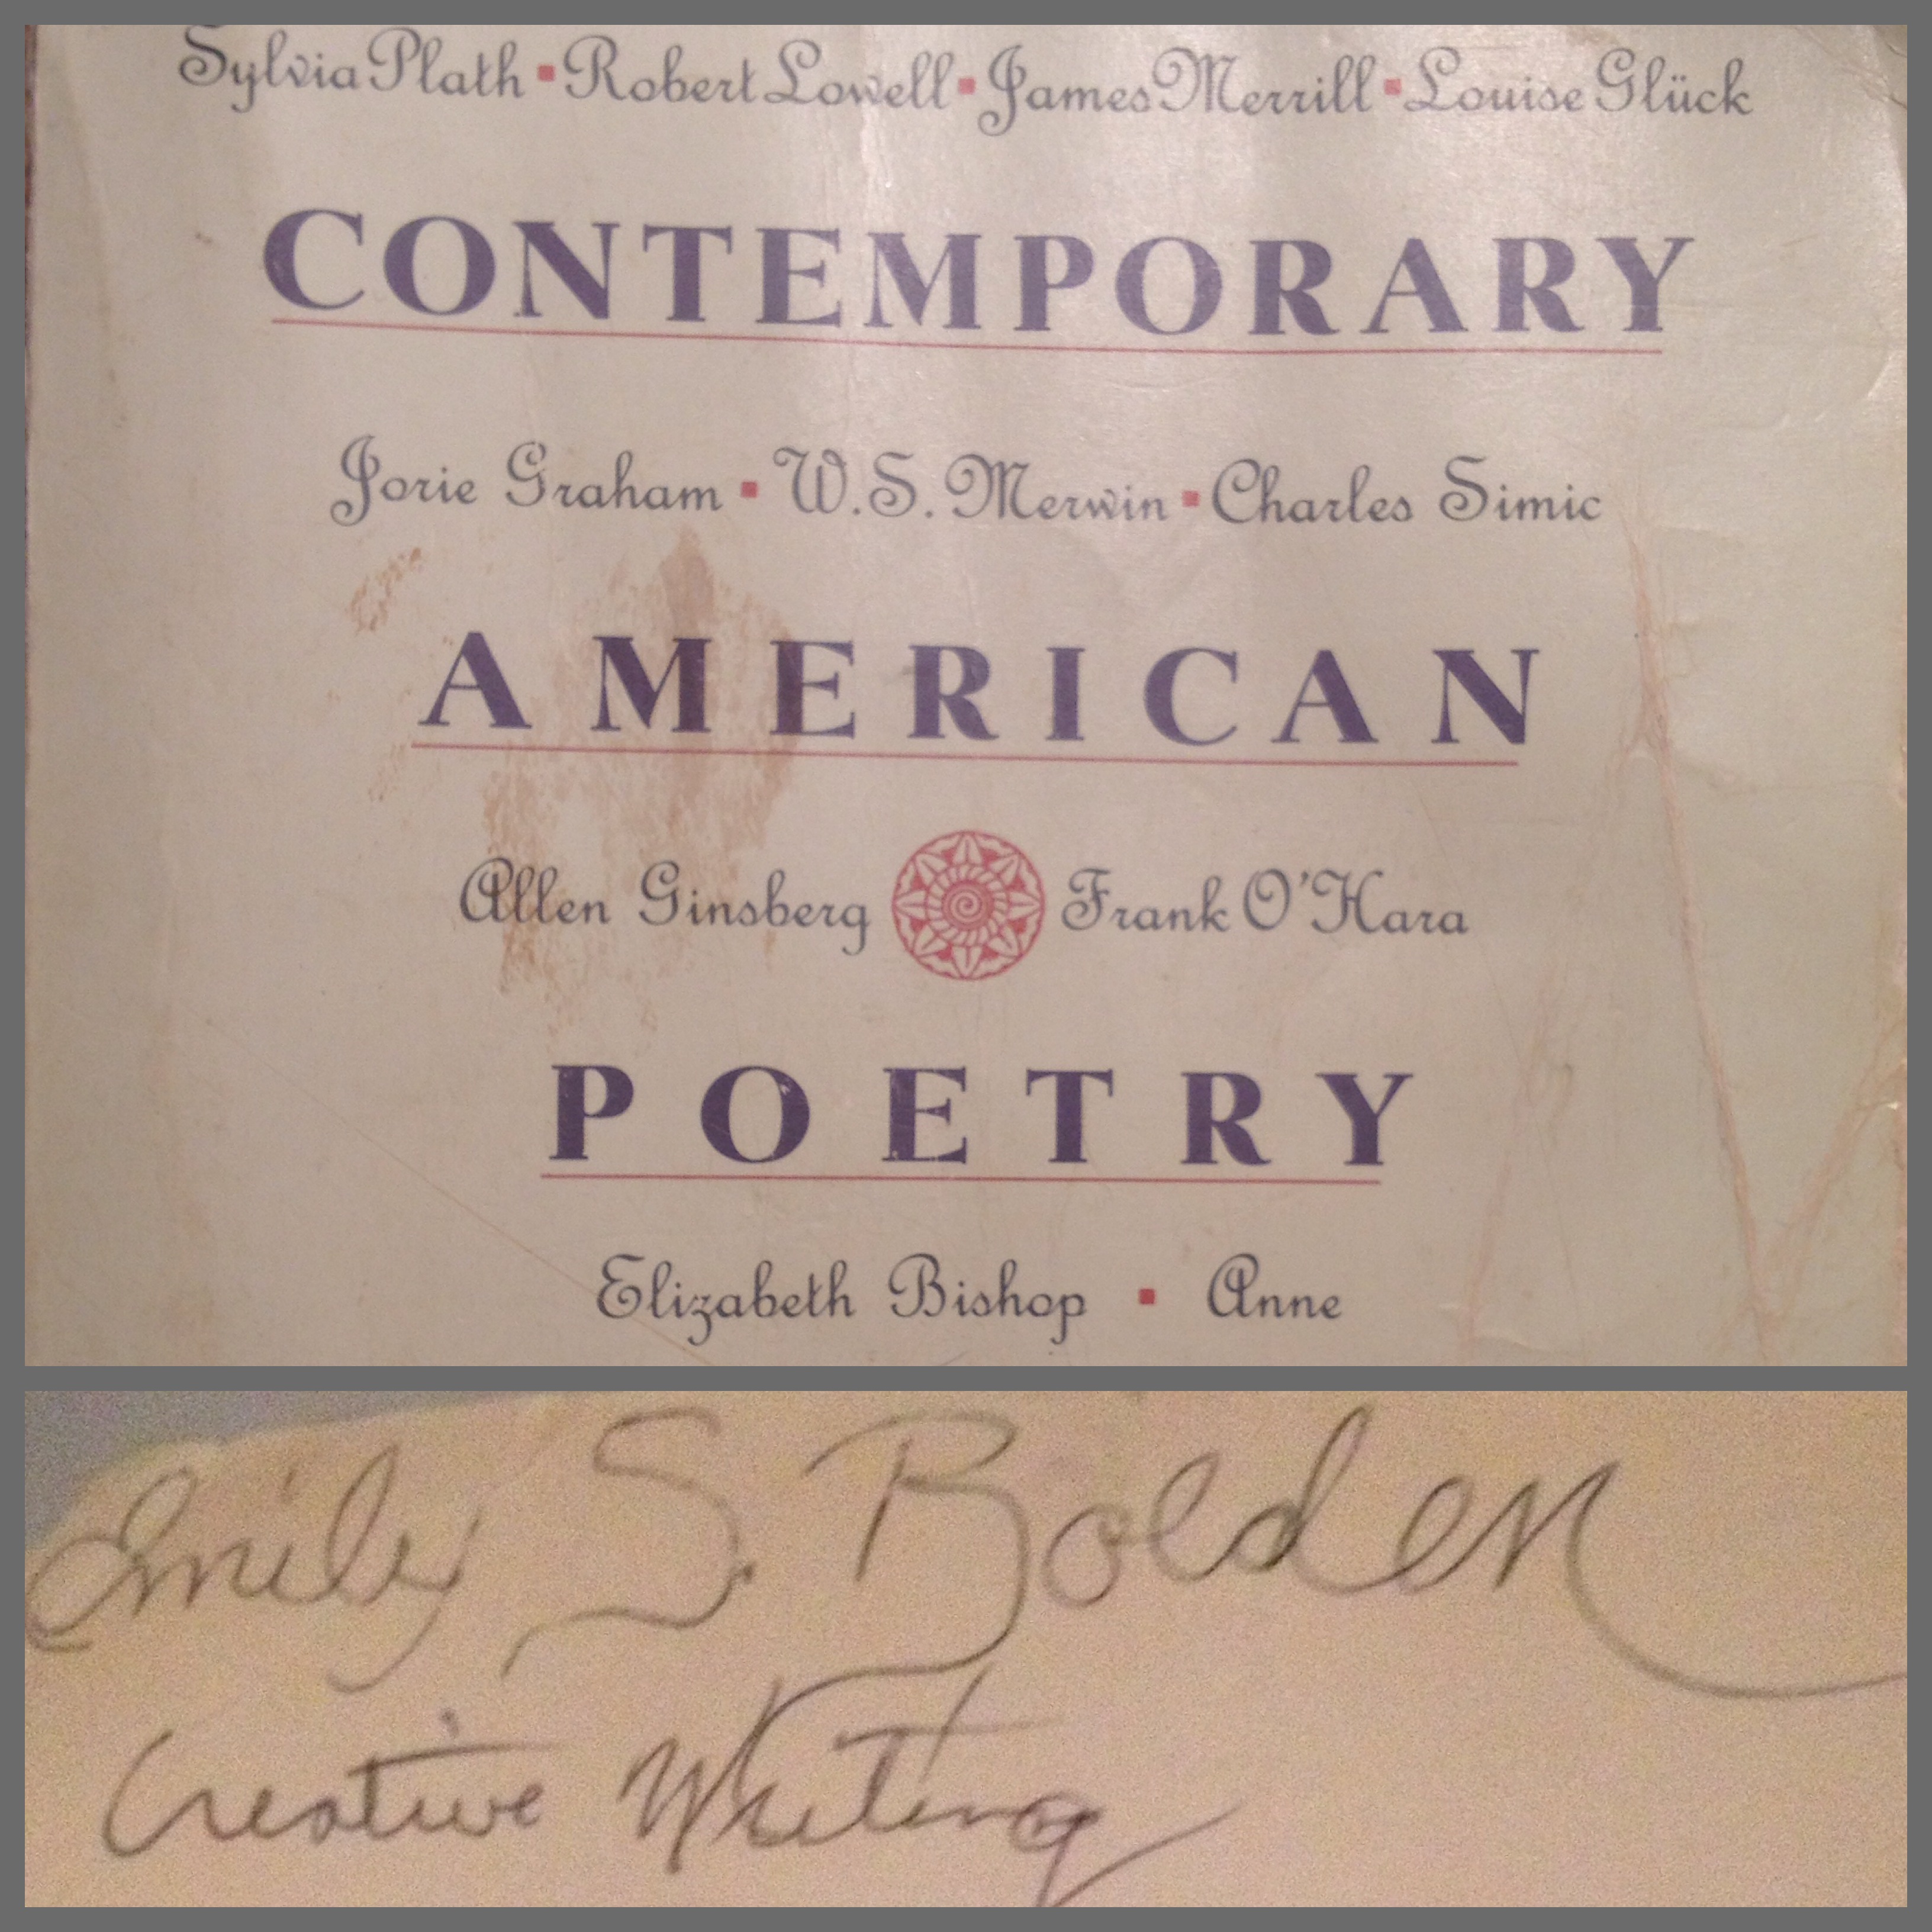 Sylvia Plath ▪ Robert Lowell ▪ James Merrill ▪ Louise Glück
CONTEMPORARY
Jorie Graham ▪ W.S. Merwin ▪ Charles Simic
AMERICAN
Allen Ginsberg Frank O'Hara
POETRY
Elizabeth Bishop ▪ Anne
Emily S. Bolden
Creative Writing